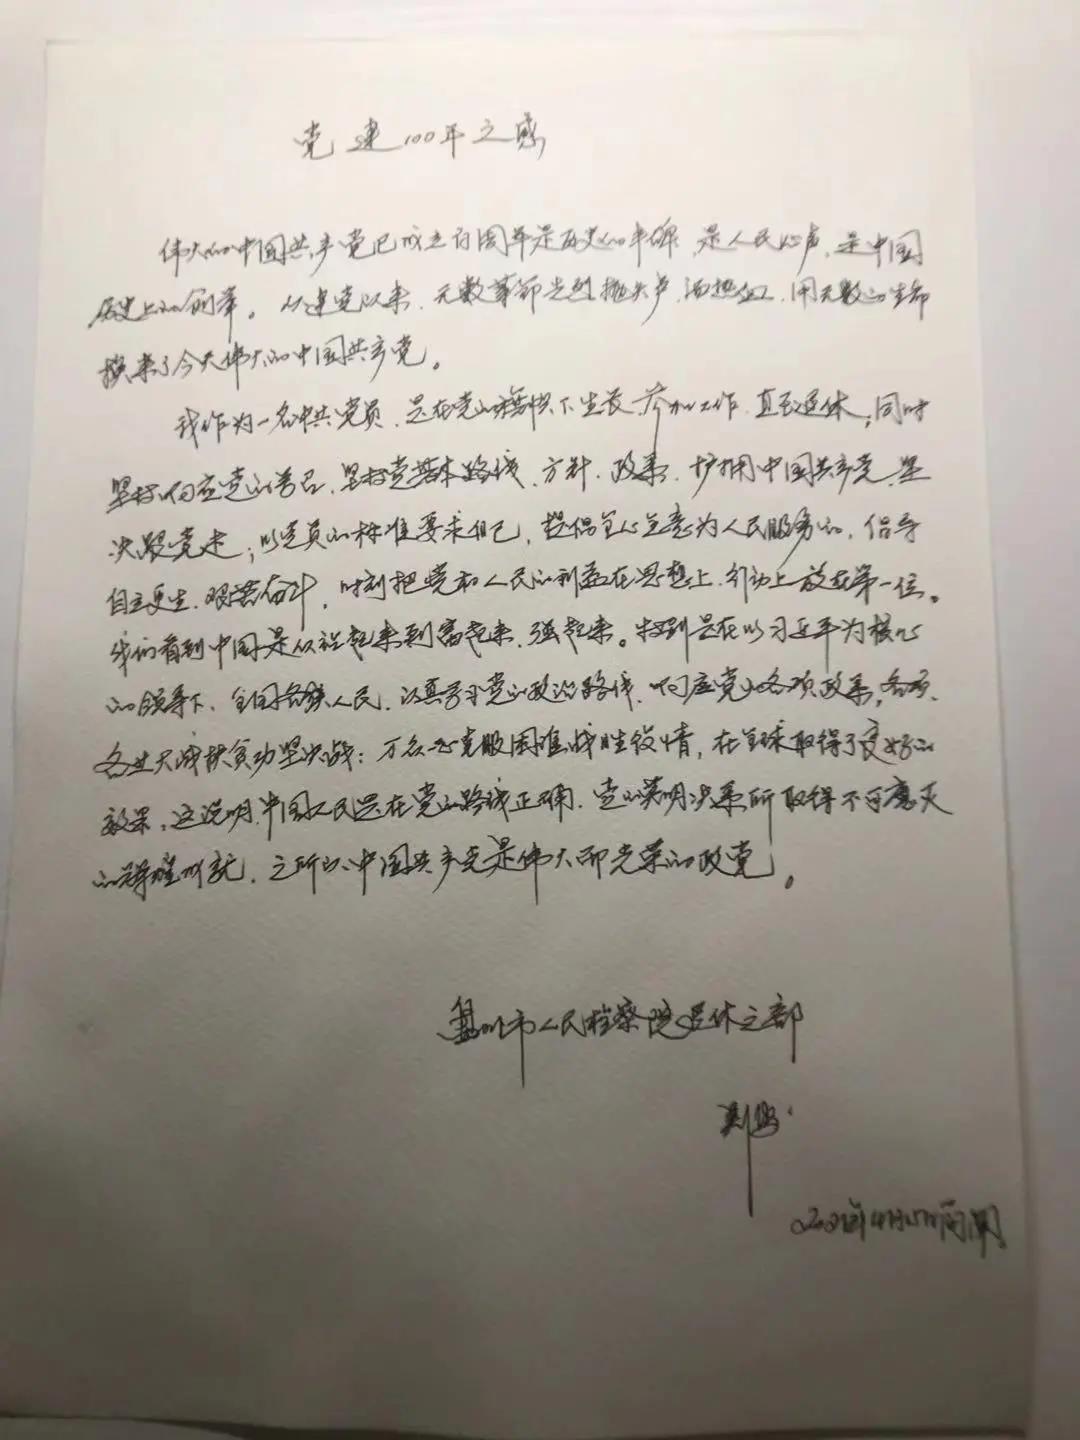 党建100年之感
伟大的中国共产党已成立百周年是历史的丰碑,是人民心声,是中国
历史上的创举。从建党以来,无数革命先烈抛头颅,洒热血,用无数的生命
换来了今天伟大的中国共产党。
我作为一名中共党员,是在党的旗帜下生长,参加工作,直至退休,同时
坚持响应党的号召,坚持党基本路线、方针、政策,护拥中国共产党,坚
决跟党走;以党员的标准要求自己,提倡全心全意为人民服务的,倡导
自立更生、艰苦奋斗,时刻把党和人民的利益在思想上、行动上放在第一位。
我们看到中国是从站起来到富起来、强起来。特别是在以习近平为核心
的领导下,全国各族人民,认真学习党的政治路线,响应党的各项政策,各
各业大战扶贫功坚决战;万众一心克服困难战胜疫情,在全球取得了良好的
效果,这说明中国人民是在党的路线正确,党的英明决策所取得不可磨灭
的辉煌成就,之所以中国共产党是伟大而光荣的政党。
市人民检察院退休支部
2021年4月